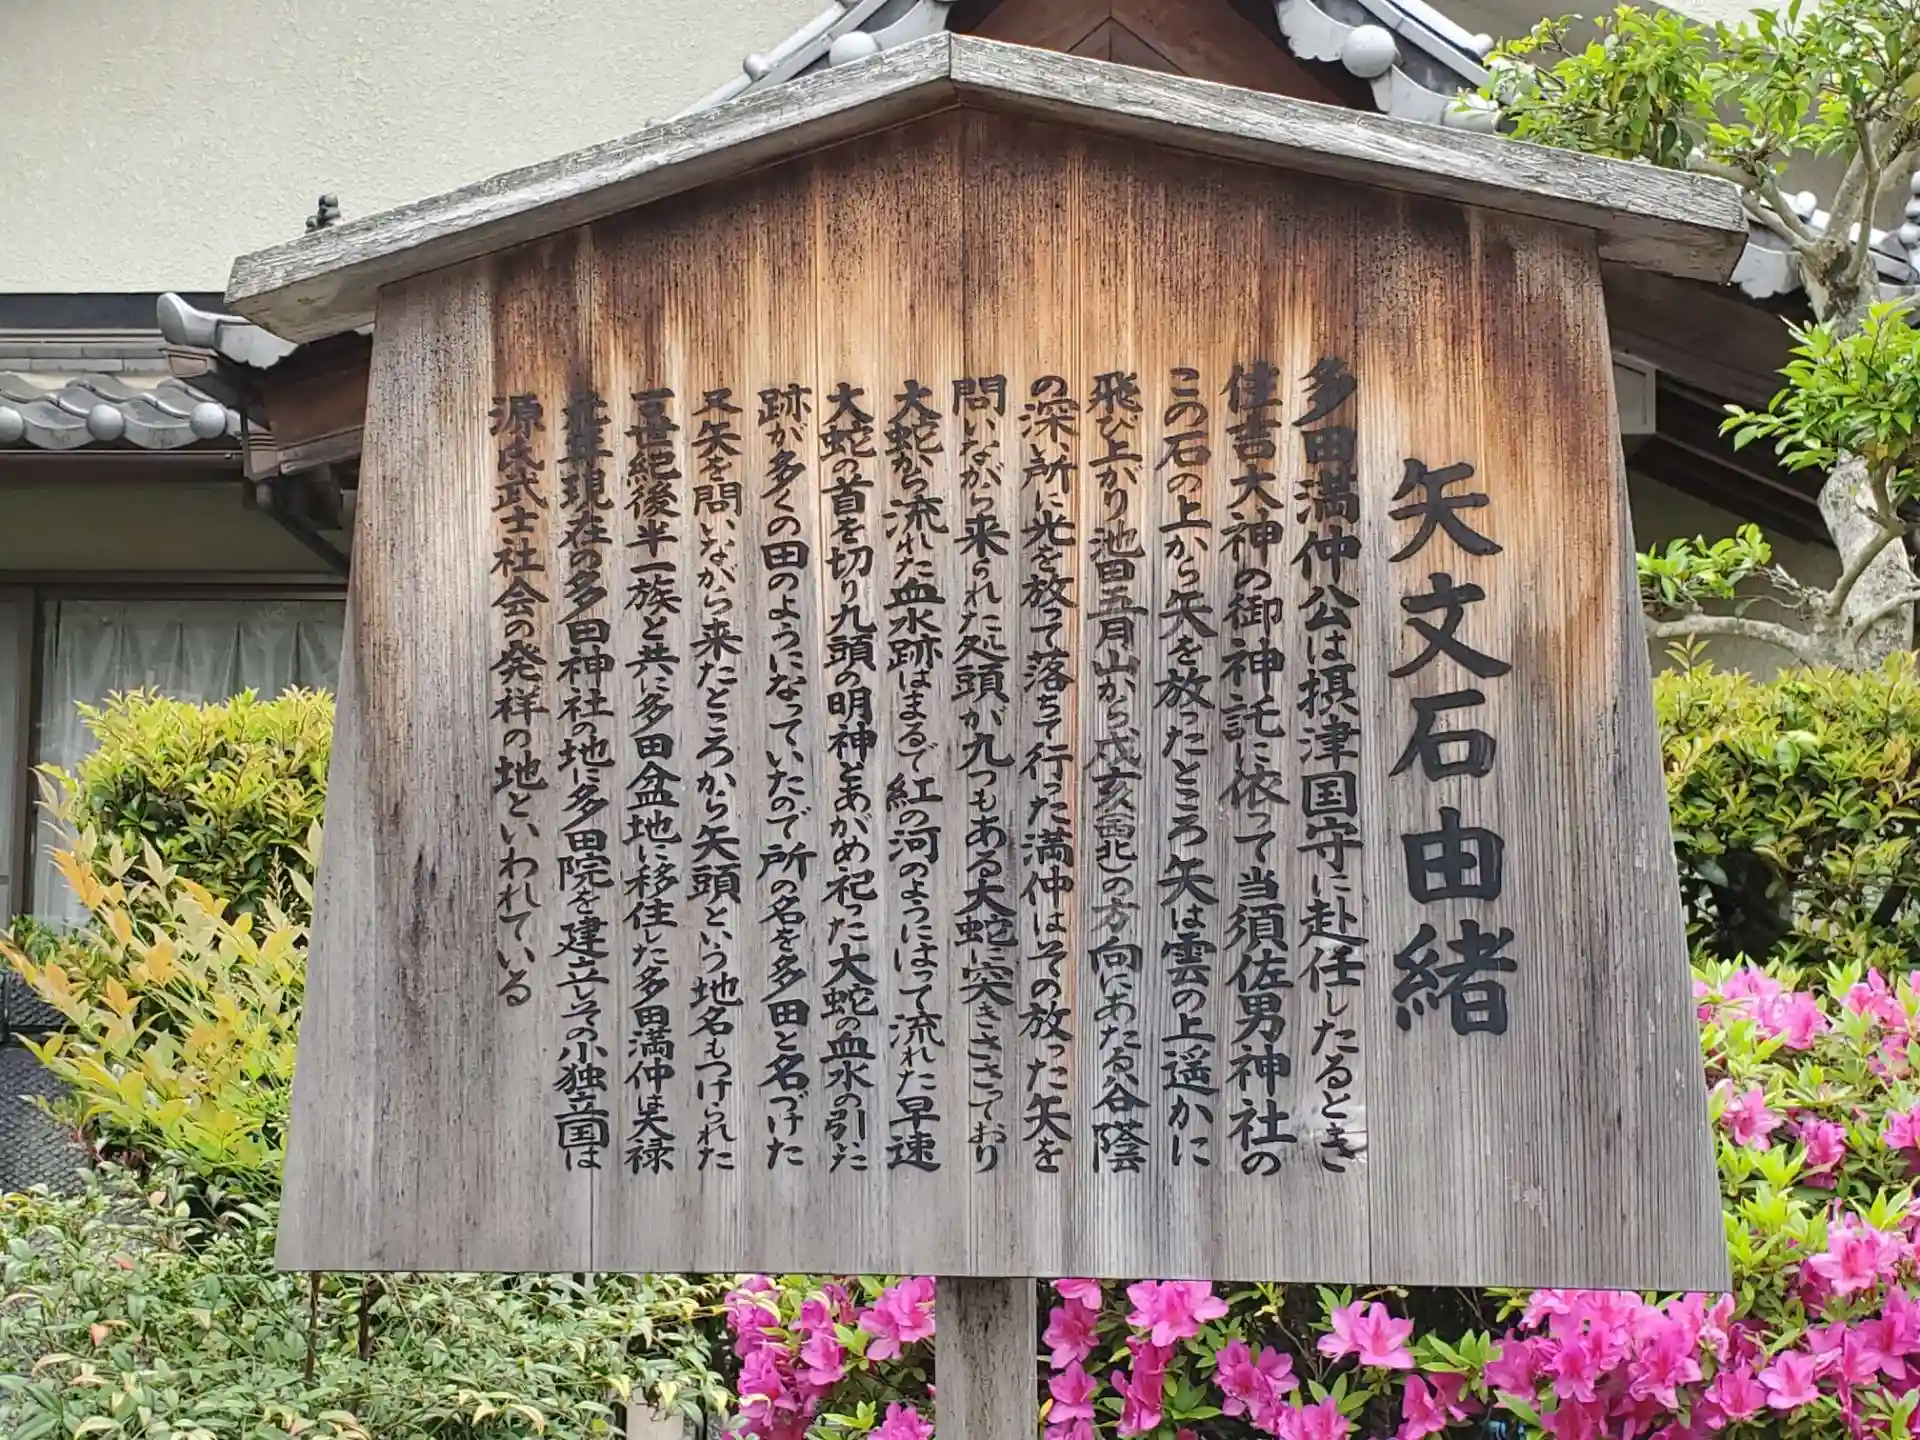 矢文石由緒
多田満仲公は摂津国守に赴任したるとき
住吉大神の御神託に依って当須佐男神社の
この石の上から矢を放ったところ矢は雲の上遥かに
飛び上がり池田五月山から戌亥（西北）の方向にあたる谷蔭
の深い所に光を放って落ちて行った満仲はその放った矢を
問いながら来られた処頭が九つもある大蛇に突きささっており
大蛇から流れた血水跡はまるで紅の河のようにはって流れた早速
大蛇の首を切り九頭の明神とあがめ祀った大蛇の血水の引いた
跡が多くの田のようになっていたので所の名を多田と名づけた
又矢を問いながら来たところから矢頭という地名もつけられた
一世紀後半一族と共に多田盆地に移住した多田満仲は天禄
元年現在の多田神社の地に多田院を建立しその小独立国は
源氏武士社会の発祥の地といわれている